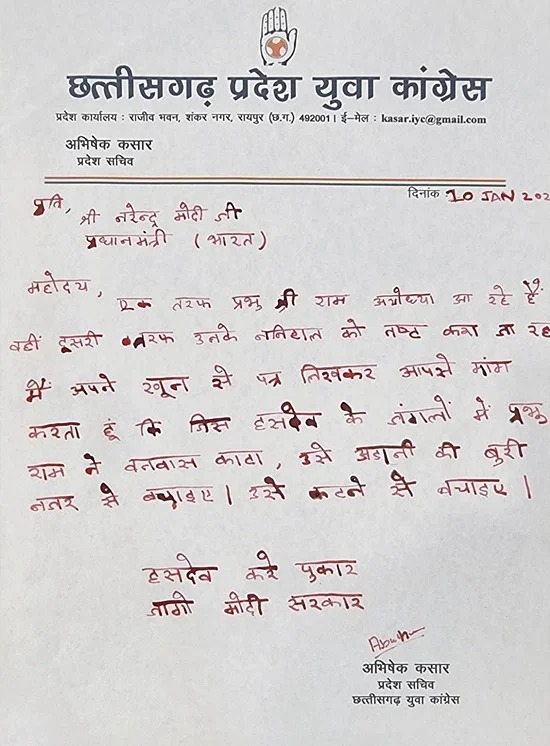 छत्तीसगढ़ प्रदेश युवा कांग्रेस
प्रदेश कार्यालय : राजीव भवन, शंकर नगर, रायपुर (छ.ग.) 492001 | ई-मेल : kasar.iyc@gmail.com
अभिषेक कसार
प्रदेश सचिव
दिनांक 10 JAN 202
प्रति,
श्री नरेन्द्र मोदी जी
प्रधानमंत्री (भारत)
महोदय,
एक तरफ प्रभु श्री राम अयोध्या आ रहे हैं
वहीं दूसरी तरफ उनके ननिहाल को नष्ट करा जा रहा
मैं अपने खून से पत्र लिखकर आपसे मांग
करता हूं कि जिस हसदेव के जंगलों में प्रभु
राम ने वनवास काटा, उसे अडानी की बुरी
नजर से बचाइए। उसे कटने से बचाइए।
हसदेव करे पुकार
जागो मोदी सरकार
अभिषेक कसार
प्रदेश सचिव
छत्तीसगढ़ युवा कांग्रेस